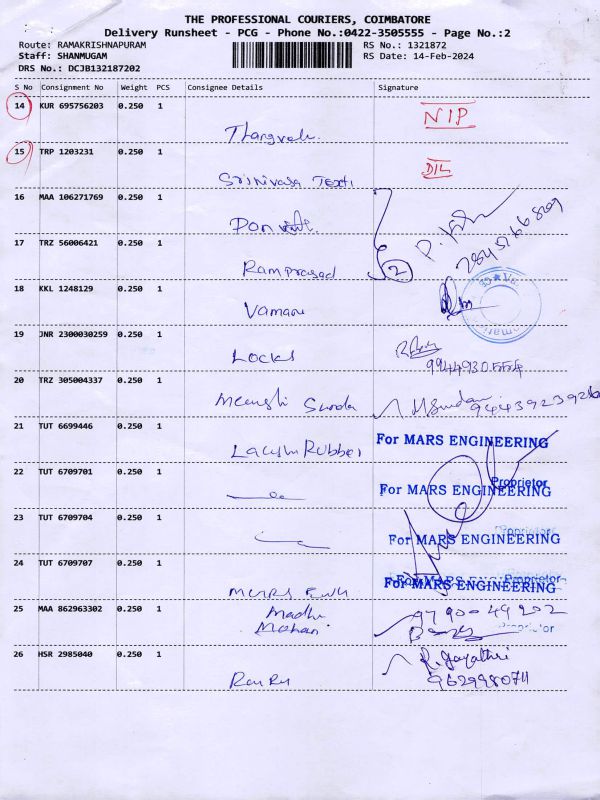 THE PROFESSIONAL COURIERS, COIMBATORE
Delivery Runsheet - PCG - Phone No.:0422-3505555 - Page No.:2
Route: RAMAKRISHNAPURAM RS No.: 1321872
Staff: SHANMUGAM RS Date: 14-Feb-2024
DRS No.: DCJB132187202
S No Consignment No Weight PCS Consignee Details Signature
14 KUR 695756203 0.250 1
NIP
15 TRP 1203231 0.250 1
Srinivasa Texti
16 MAA 106271769 0.250 1
17 TRZ 56006421 0.250 1
Ramprasad 2
18 KKL 1248129 0.250 1
Vamani
19 JNR 2300030259 0.250 1
Locks
20 TRZ 305004337 0.250 1
21 TUT 6699446 0.250 1
Rubber For MARS ENGINEERING
Proprietor
22 TUT 6709701 0.250 1
For MARS ENGINEERING
Proprietor
23 TUT 6709704 0.250 1
For MARS ENGINEERING
24 TUT 6709707 0.250 1
For MARS ENGINEERING
Proprietor
25 MAA 862963302 0.250 1
Madhu 9790049202
Mohan
26 HSR 2985040 0.250 1
R. Gayathri
9629980711